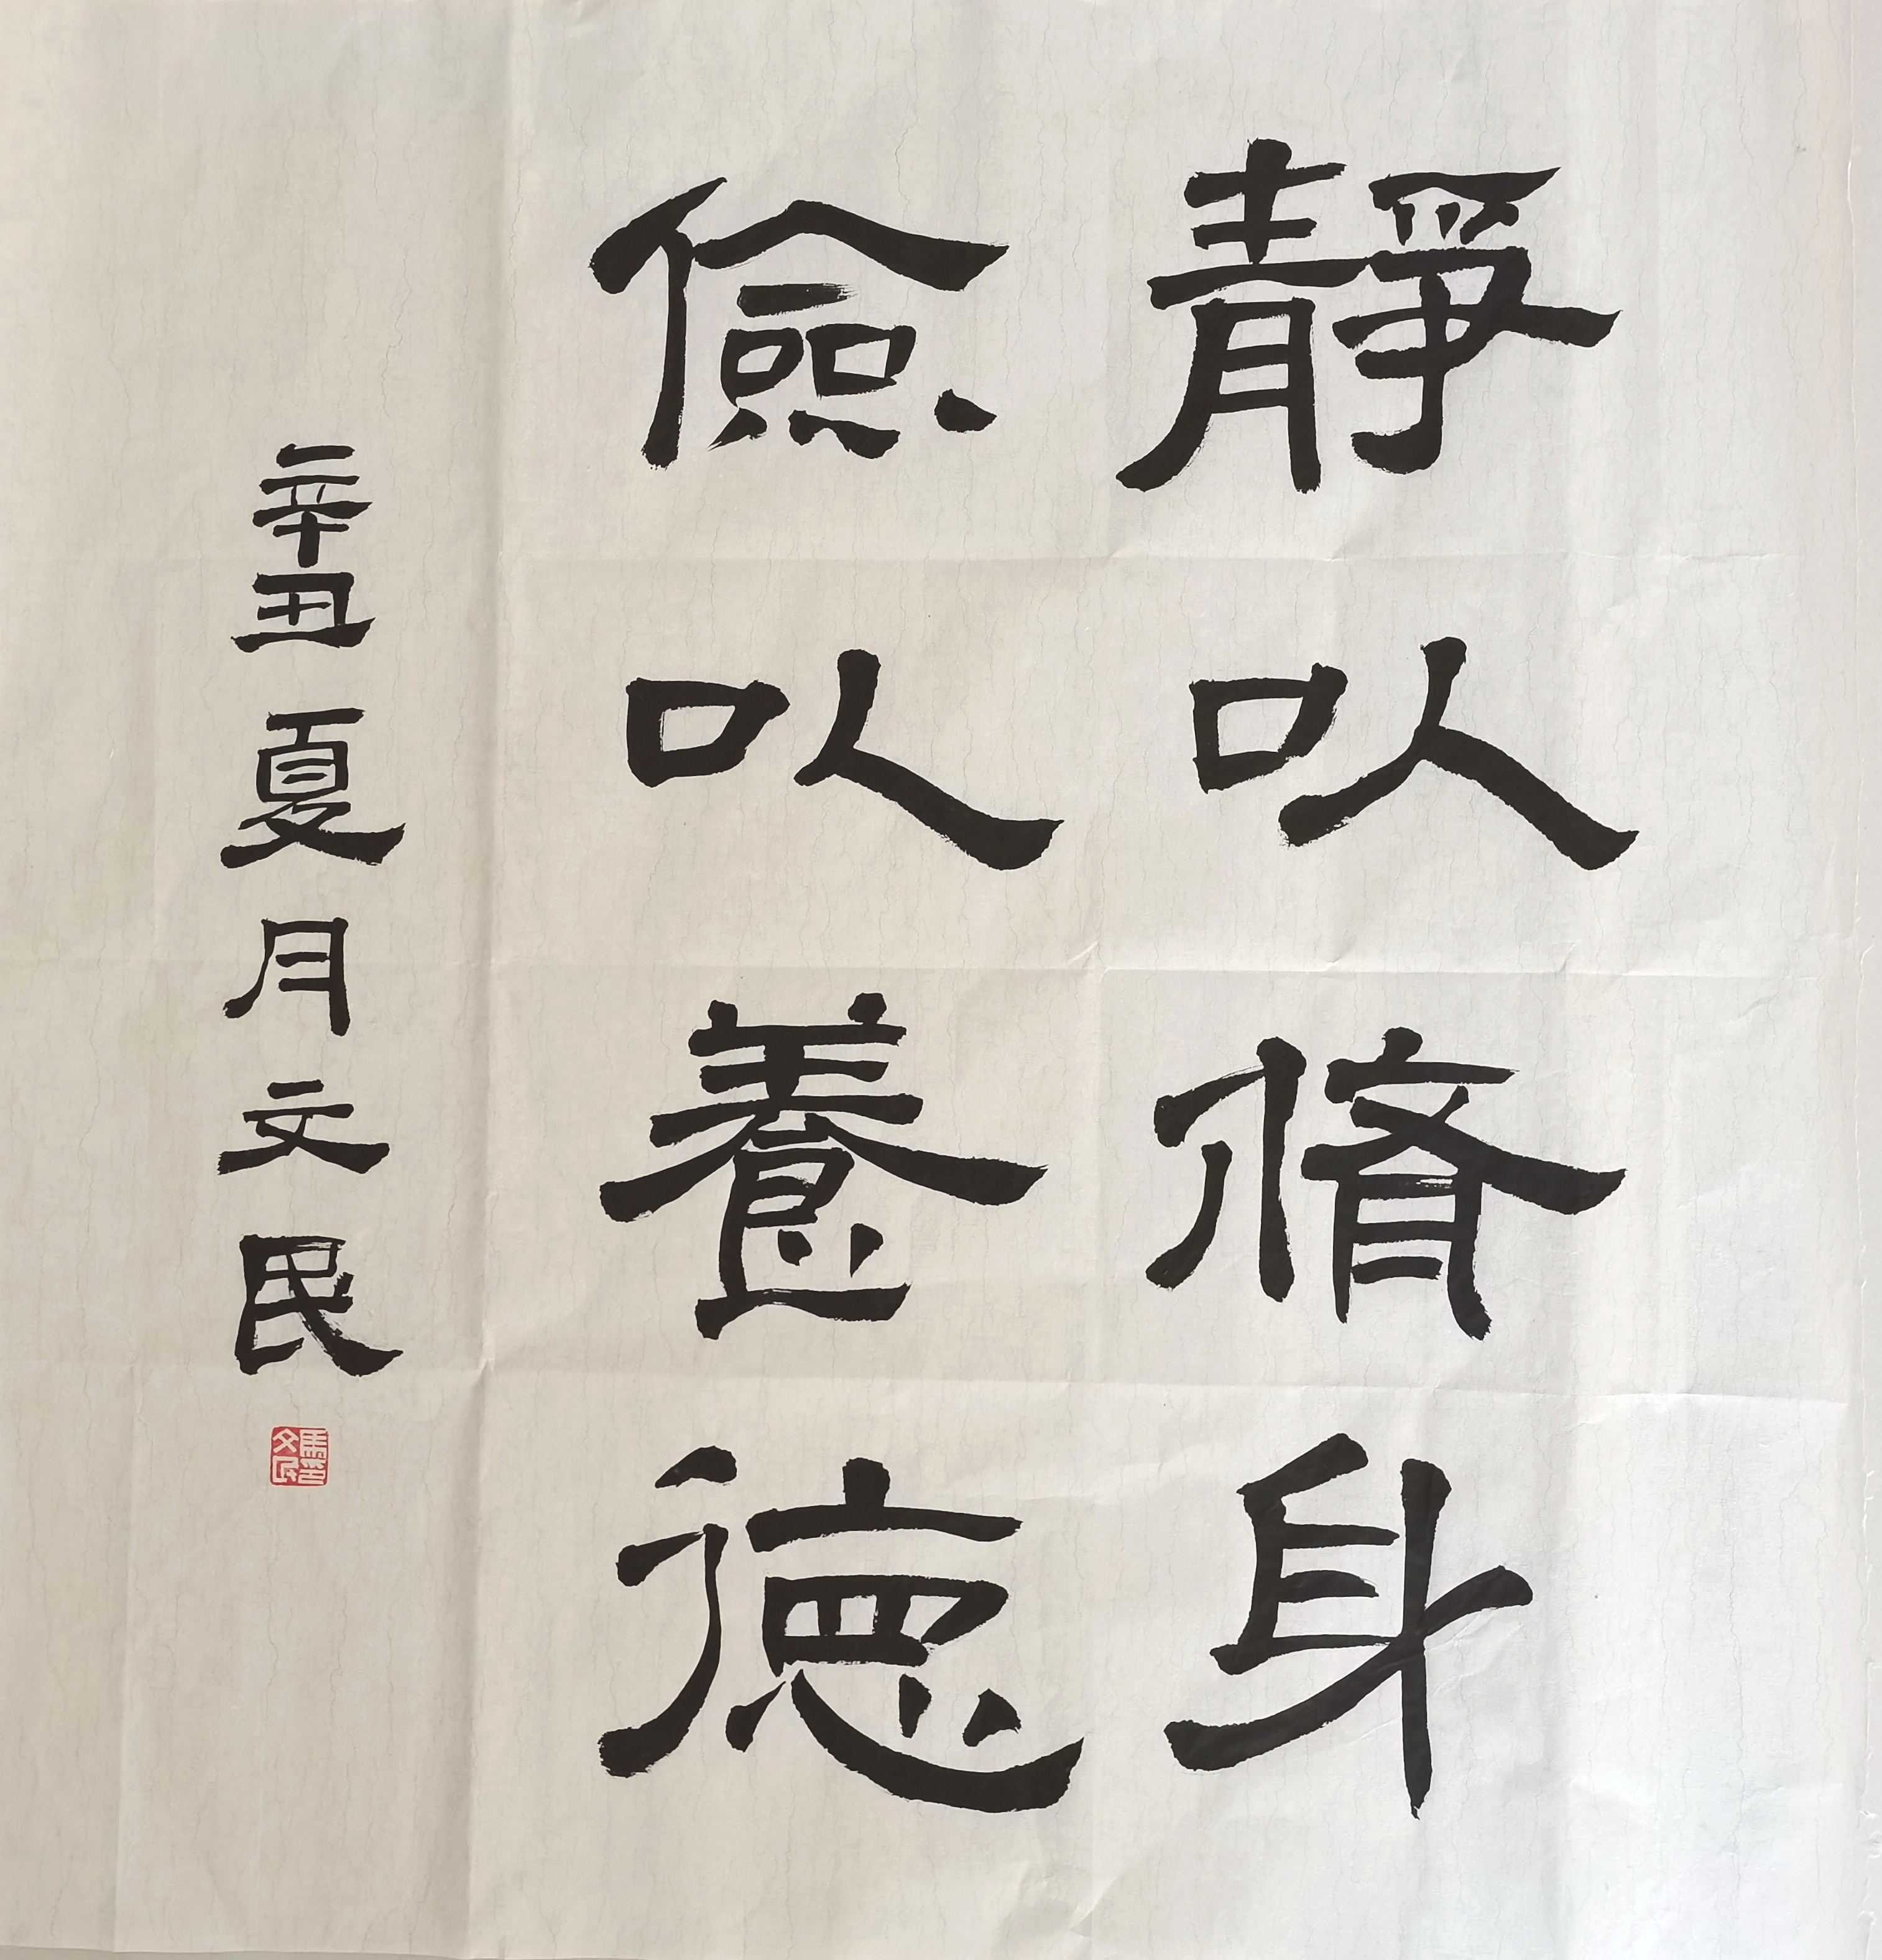 靜以脩身
儉以養德
辛丑夏月文民
馬文民印